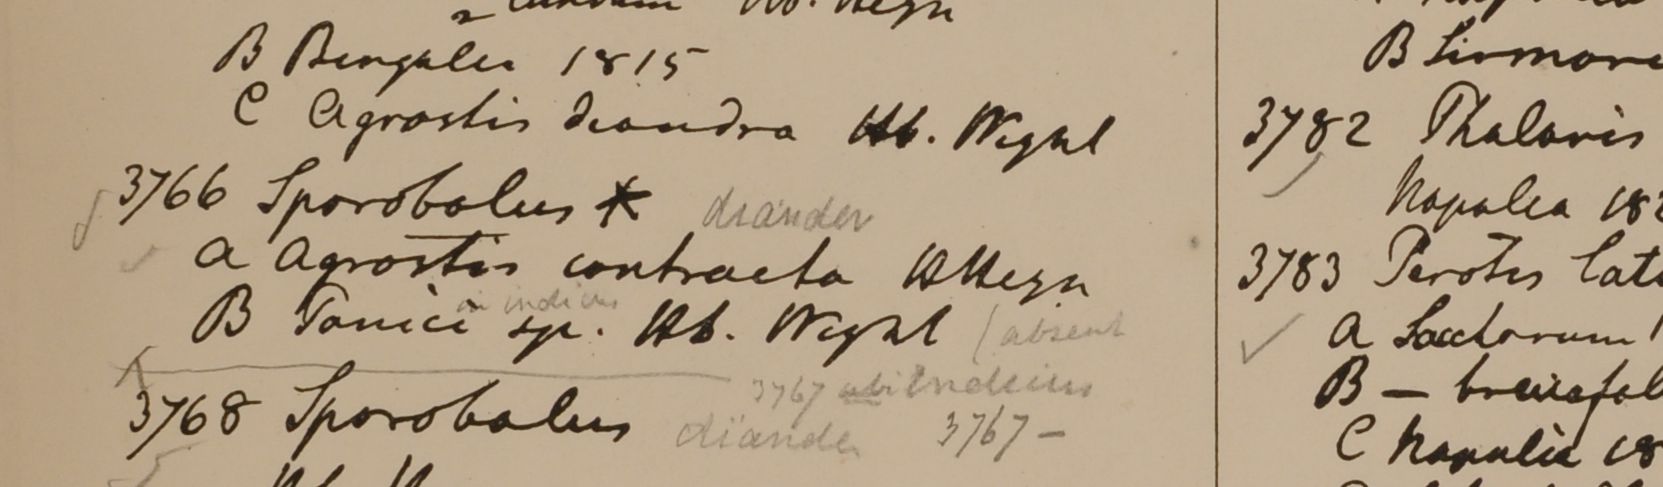 Hb. Heyn
B Bengalia 1815
C Agrostis diandra Hb. Wight
3766 Sporobolus * diander
a Agrostis contracta H Heyn
or indicus
B Panici sp. Hb. Wight (absent
3767 Indicus
3768 Sporobolus diander 3767 -
B Sirmore
3782 Phalaris
Napalea 182
3783 Perotis lati
a Saccharum
B - brevifol
C Napalia 18